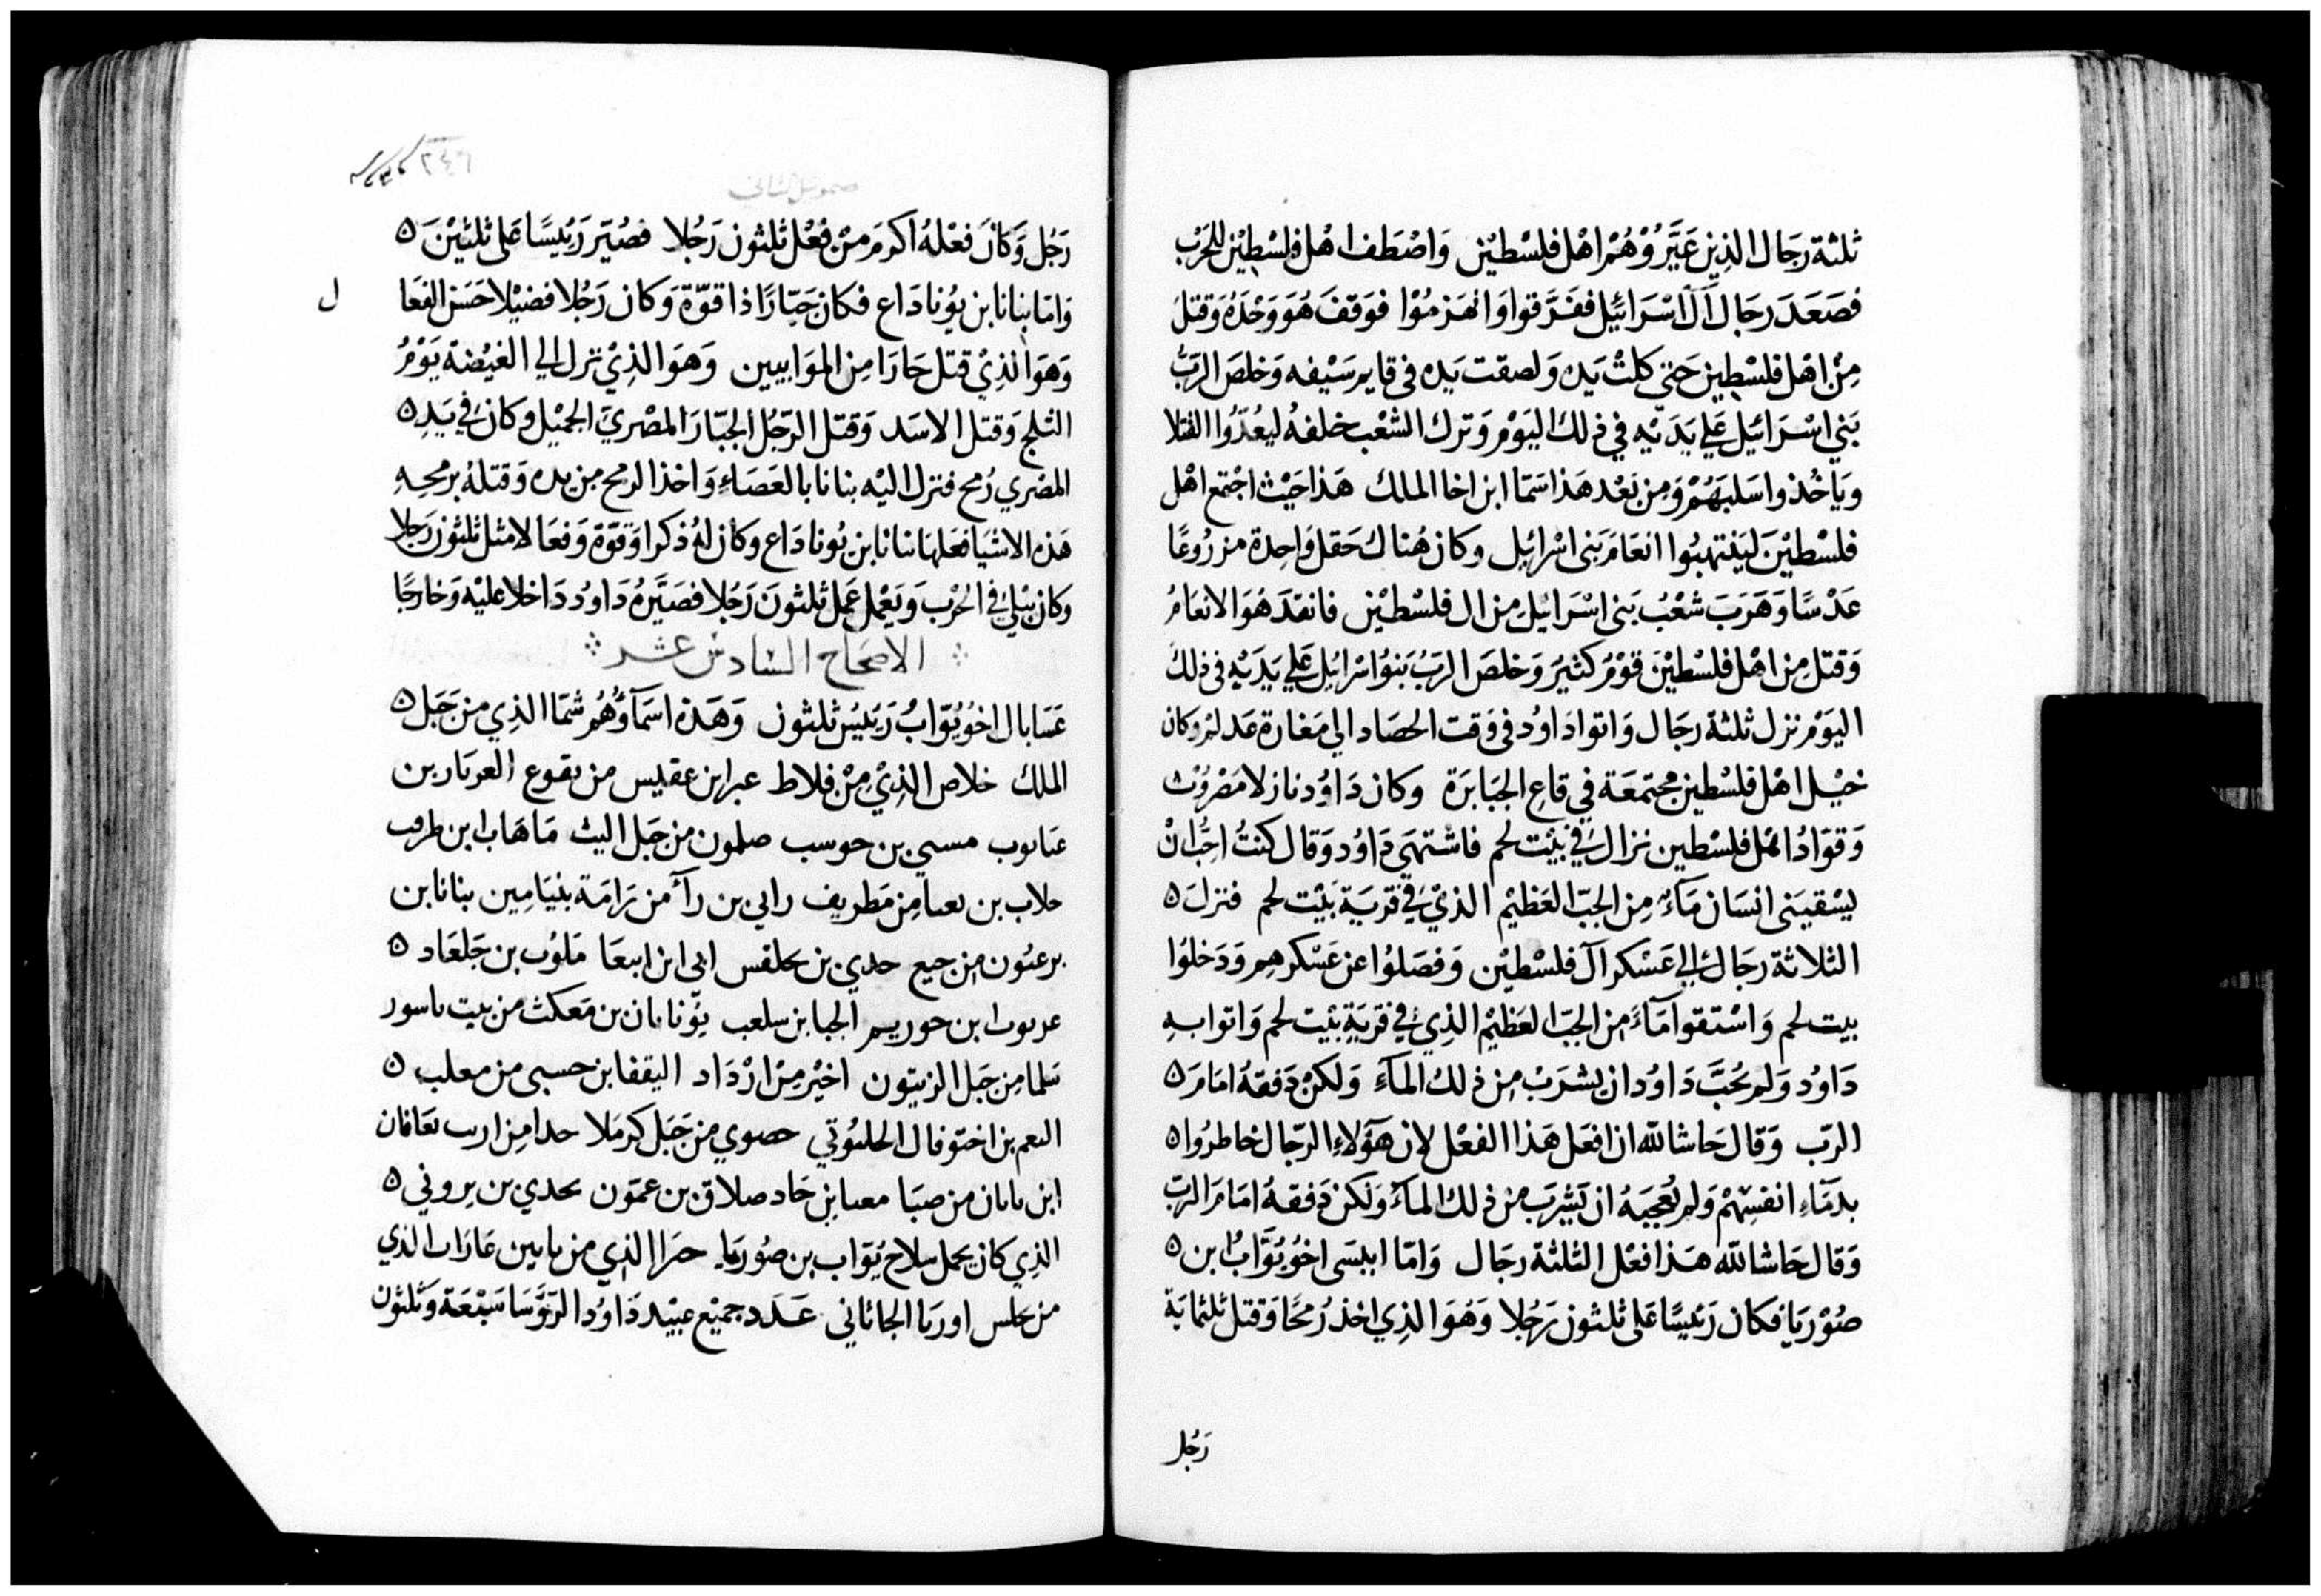 ثلثة رجال الذين عَيَّرُوْهُمْ اهل فلسْطيْن وَاصْطَفا اهل فلسْطِيْن للحَرْب
فصَعَدَ رجَال آل اسْرَائيْل ففَرَّقوا وَانهَزمُوْا فوَقفَ هُوَ وَحْدَهُ وَقتلَ
مِنْ اهْل فلسْطِين حَتى كلتْ يَده وَلصقت يَده في قايم سَيْفه وَخلصَ الرَبُّ
بَني اسْرَائيْل عَلي يَدَيْه في ذلك اليَوْم وَترك الشعْب خلفهُ ليعُدّوا القتلا
ويَاخُذوا سَلبَهُمْ وَمن بَعْد هَذا سَمّا ابن اخا الملك هَذا حَيْث اجْتمع اهْل
فلسْطيْنَ ليَنْتهبُوا انعَامَ بَني اسْرَائيل وكان هُناك حَقل وَاحِدة مزرُوعًا
عَدْسًا وَهَرَبَ شعْبُ بَني اسْرَائيْل مِن ال فلسْطيْن فانقدَ هُوَ الانعَامُ
وَقتل مِن اهْل فلسْطيْن قوْمٌ كثيرٌ وَخلصَ الربُ بَنوُ اسْرائِيل عَلي يَدَيْه في ذلك
اليَوْم نزل ثلثة رجَال وَاتوا دَاوُد في وَقت الحصَاد الي مَغارة عَدلم وكان
خيْل اهْل فلسْطين مجتمعَة في قاع الجبَابرَة وكان دَاوُد نازلا مَصْرُوْث
وَقوّادُ اهْل فلسْطين نزال في بيْت لحم فاشتهَي دَاوُد وَقال كنتُ احِبُّ انْ
يسْقيَني انسَان مَآءً مِن الجبّ العَظيْم الذيْ في قرَيَة بَيْت لحم فنزلَ ٥
الثلاثة رجَال الي عَسْكر آل فلسْطيْن وَفصَلوُا عن عَسْكرهِم وَدَخلوُا
بيت لحم وَاسْتقوا مَآءً من الجبّ العَظيْم الذِيْ في قرَيَة بيْت لحم وَاتوا به
دَاوُد وَلم يحُبَّ دَاوُد ان يشرَبْ مِن ذلك المآءِ وَلكنْ دَفقهُ امَامَ ٥
الربّ وَقال حَاشا لله ان افعَل هَذا الفعْل لان هَؤلاءِ الرّجال خاطرُوا ٥
بدمَآءِ انفسِهمْ وَلم يُعجبَهُ ان يَشربَ من ذلك المآءَ وَلكن دَفقهُ امَامَ الربّ
وَقال حَاشا لله هَذا فعْل الثلثة رجَال وَامّا ابيسَي اخوُ يُوَّابُ ابن ٥
صُوْريَا فكان رَئيسًا عَلى ثلثون رَجُلا وَهُوَ الذِي اخذ رُمحًا وَقتل ثلثمايَة
رَجُل
صموئيل الثاني
٢٤٩
رَجُل وَكانَ فعْلهُ اكرمَ منْ فعْل ثلثون رَجُلا فصُيّر رَئيسًا عَلى ثلثيْنَ ٥
وَامّا بنانا ابن يوُنادَاع فكان جَبّارًا ذا قوّة وَكان رَجُلا فضيْلا حَسَن الفعَا ل
وَهوَ الذِيْ قتل حَارَا مِن الموَابيين وَهوَ الذِيْ نزل الي الغيْضة يَوْمُ
الثلج وَقتل الاسَد وَقتل الرّجُل الجبّارَ المصْريَ الجمْيل وكان في يَدِ ٥
المصْري رُمح فنزل اليْه بنانا بالعَصَاءِ وَاخذ الرمح من يده وَقتلهُ برمحِهِ
هَذه الاشيَا فعَلها بنانا ابن يوُنادَاع وكان لهُ ذكرا وَقوّة وَفعَالا مثل ثلثون رَجلا
وكان يبْلي في الحرْب وَيَعْمل عَمل ثلثونَ رَجُلا فصَيَّرهُ دَاوُد دَاخلا عليْه وَخارجًا
الاصحَاح السَادسْ عشر
عَسَابال اخوُ يوّابُ رَئيسُ ثلثون وَهَذه اسَمآؤُهُمْ شمَا الذِي من جَبَل ٥
الملك خلاص الذِيْ مِنْ فلاط عبرا ابن عقيس من تقوع العربَار بن
عَناتوب مسي بن حوسب صلمون من جَبَل اليث مَاهَاب ابن طرفب
حلاب بن نعنا مِن مَطريف رابي بن رآ من رَامَة بنيَامِين بنانا بن
برعتوُن من جيع حدي بن نحلقس ابي ابن ابيعَا مَلوُب بن جَلعَاد ٥
عرموب ابن حوريم الجبا بن سلعب يوُناثان بن مَعكث من بيت ياسور
سَلما مِن جَبَل الزيتون اخيْر مِنْ ارْدَاد اليقفا بن حسبي من معلب ٥
النعم بن اختوفال الحلسوُتي حصوي من جَبَل كرمَلا حدا مِن ارب نعَافان
ابن ناثان من صبَا معنا بن جَاد صلاق بن عمّون نحدي بن بروني ٥
الذِي كان يحمل سلاح يوَاب بن صُوريا حرا الذِي من يابين عَارَاب الذي
من حلس اوريَا الجاثاني عَدَد جميْع عبيْد دَاوُد الرَوَّسَا سَبْعَة وَثلثون